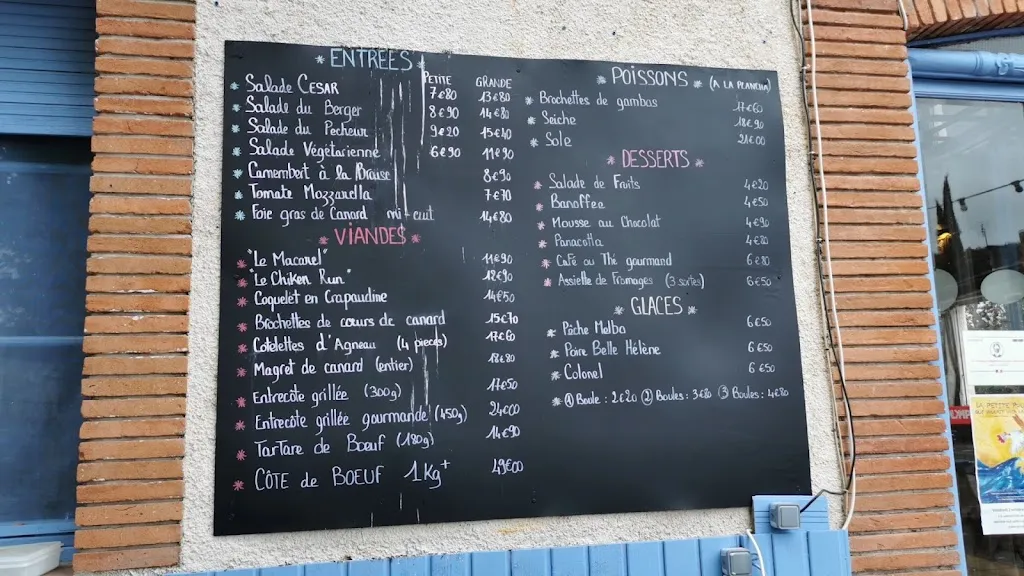 ENTREES
PETITE GRANDE
Salade CESAR 7€80 13€80
Salade du Berger 8€90 14€80
Salade du Pecheur 9€20 15€40
Salade Végétarienne 6€90 11€90
Camembert à la Braise 8€90
Tomate Mozzarella 7€70
Foie gras de Canard mi-cuit 14€80
VIANDES
"Le Macarel" 11€90
"Le Chiken Run" 12€90
Coquelet en Crapaudine 14€50
Brochettes de cœurs de canard 15€70
Cotelettes d'Agneau (4 pieces) 17€60
Magret de canard (entier) 18€80
Entrecote grillée (300g) 17€50
Entrecote grillée gourmande (450g) 24€00
Tartare de Bœuf (180g) 14€90
CÔTE de BOEUF 1Kg+ 49€00
POISSONS (A LA PLANCHA)
Brochettes de gambas 17€60
Seiche 18€90
Sole 21€00
DESSERTS
Salade de Fruits 4€20
Banoffee 4€50
Mousse au Chocolat 4€90
Panacotta 4€80
Café ou Thé gourmand 6€80
Assiette de Fromages (3 sortes) 6€50
GLACES
Pêche Melba 6€50
Poire Belle Hélène 6€50
Colonel 6€50
① Boule : 2€20 ② Boules : 3€80 ③ Boules : 4€80